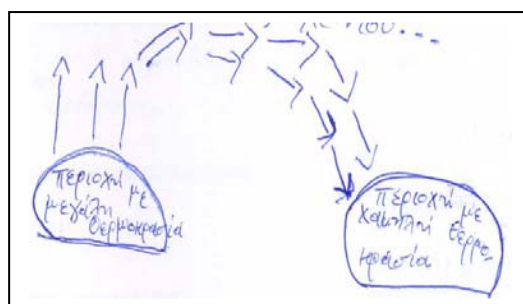 περιοχή με
μεγάλη
θερμοκρασία
περιοχή με
χαμηλή θερμο-
κρασία